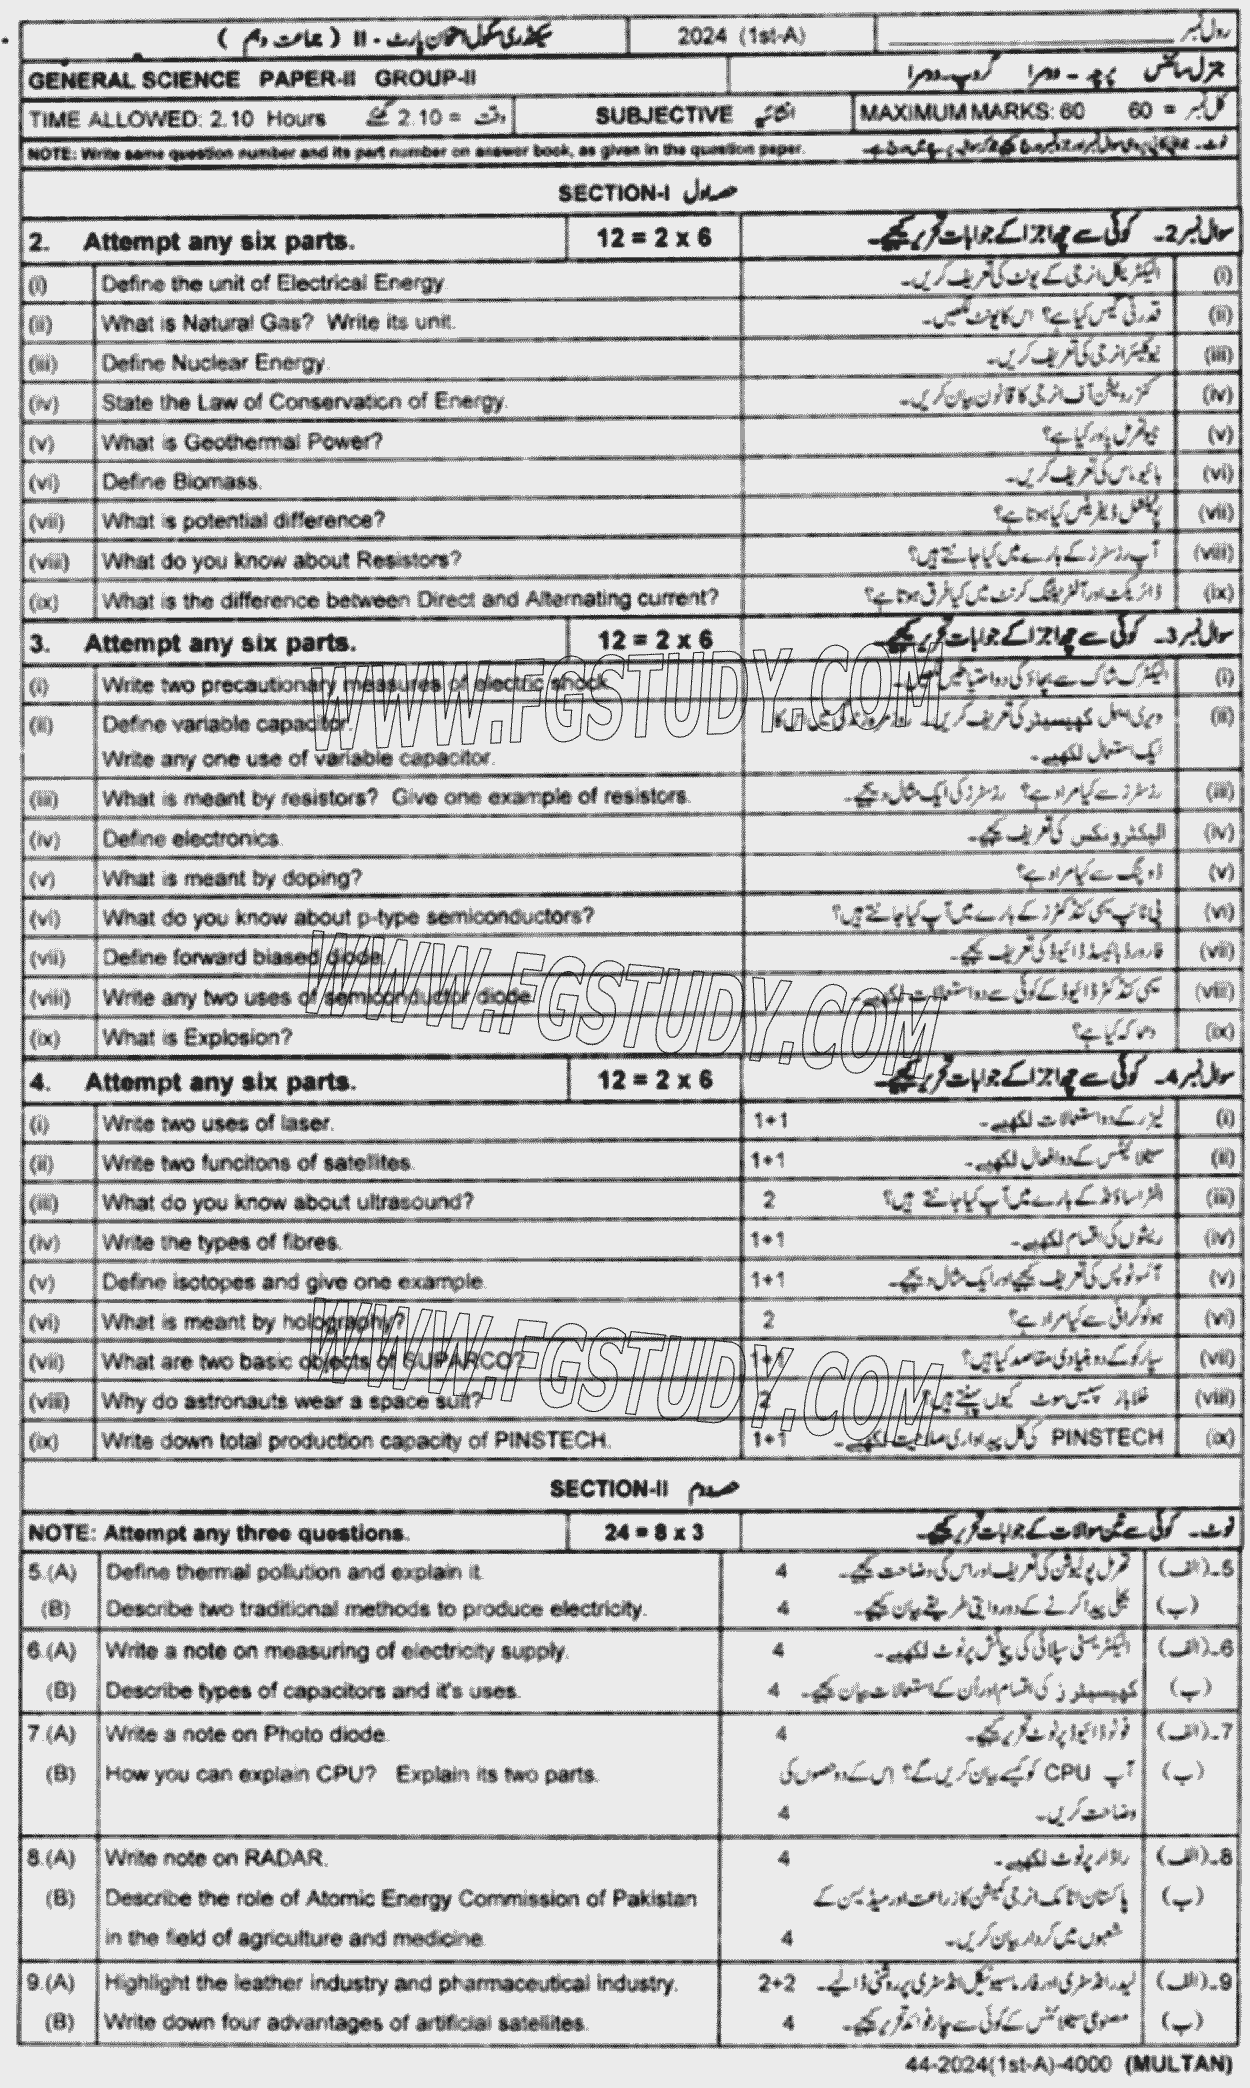 سیکنڈری سکول امتحان پارٹ - II ( جماعت دہم ) 2024 (1st-A) رول نمبر
GENERAL SCIENCE PAPER-II GROUP-II جنرل سائنس پرچہ - دوسرا گروپ - دوسرا
TIME ALLOWED: 2.10 Hours وقت = 2.10 گھنٹے SUBJECTIVE انشائیہ MAXIMUM MARKS: 60 کل نمبر = 60
NOTE: Write same question number and its part number on answer book, as given in the question paper.
SECTION-I حصہ اول
2. Attempt any six parts. 12 = 2 x 6 سوال نمبر 2۔ کوئی سے چھ اجزا کے جوابات تحریر کیجیے۔
(i) Define the unit of Electrical Energy. الیکٹریکل انرجی کے یونٹ کی تعریف کریں۔ (i)
(ii) What is Natural Gas? Write its unit. قدرتی گیس کیا ہے؟ اس کا یونٹ لکھیں۔ (ii)
(iii) Define Nuclear Energy. نیوکلیئر انرجی کی تعریف کریں۔ (iii)
(iv) State the Law of Conservation of Energy. کنزرویشن آف انرجی کا قانون بیان کریں۔ (iv)
(v) What is Geothermal Power? جیوتھرمل پاور کیا ہے؟ (v)
(vi) Define Biomass. بائیوماس کی تعریف کریں۔ (vi)
(vii) What is potential difference? پوٹینشل ڈیفرینس کیا ہوتا ہے؟ (vii)
(viii) What do you know about Resistors? آپ رزسٹرز کے بارے میں کیا جانتے ہیں؟ (viii)
(ix) What is the difference between Direct and Alternating current? ڈائریکٹ اور آلٹرنیٹنگ کرنٹ میں کیا فرق ہوتا ہے؟ (ix)
3. Attempt any six parts. 12 = 2 x 6 سوال نمبر 3۔ کوئی سے چھ اجزا کے جوابات تحریر کیجیے۔
(i) Write two precautionary measures of electric shock. الیکٹرک شاک سے بچاؤ کی دو احتیاطیں (i)
WWW.FGSTUDY.COM
(ii) Define variable capacitor. ویری ایبل کپیسیٹر کی تعریف کریں۔ روزمرہ زندگی میں اس کا (ii)
Write any one use of variable capacitor. ایک استعمال لکھیے۔
(iii) What is meant by resistors? Give one example of resistors. رزسٹرز سے کیا مراد ہے؟ رزسٹرز کی ایک مثال دیجیے۔ (iii)
(iv) Define electronics. الیکٹرونکس کی تعریف کیجیے۔ (iv)
(v) What is meant by doping? ڈوپنگ سے کیا مراد ہے؟ (v)
(vi) What do you know about p-type semiconductors? پی ٹائپ سیمی کنڈکٹرز کے بارے میں آپ کیا جانتے ہیں؟ (vi)
(vii) Define forward biased diode. فارورڈ بائیسڈ ڈائیوڈ کی تعریف کیجیے۔ (vii)
WWW.FGSTUDY.COM
(viii) Write any two uses of semiconductor diode. سیمی کنڈکٹر ڈائیوڈ کے کوئی سے دو استعمالات لکھیے۔ (viii)
(ix) What is Explosion? دھماکہ کیا ہے؟ (ix)
4. Attempt any six parts. 12 = 2 x 6 سوال نمبر 4۔ کوئی سے چھ اجزا کے جوابات تحریر کیجیے۔
(i) Write two uses of laser. 1+1 لیزر کے دو استعمالات لکھیے۔ (i)
(ii) Write two funcitons of satellites. 1+1 سیٹلائیٹس کے دو افعال لکھیے۔ (ii)
(iii) What do you know about ultrasound? 2 الٹراساؤنڈ کے بارے میں آپ کیا جانتے ہیں؟ (iii)
(iv) Write the types of fibres. 1+1 ریشوں کی اقسام لکھیے۔ (iv)
(v) Define isotopes and give one example. 1+1 آئسوٹوپس کی تعریف کیجیے اور ایک مثال دیجیے۔ (v)
(vi) What is meant by holography? 2 ہولوگرافی سے کیا مراد ہے؟ (vi)
WWW.FGSTUDY.COM
(vii) What are two basic objects of SUPARCO? 1+1 سپارکو کے دو بنیادی مقاصد کیا ہیں؟ (vii)
(viii) Why do astronauts wear a space suit? 2 خلاباز سپیس سوٹ کیوں پہنتے ہیں؟ (viii)
(ix) Write down total production capacity of PINSTECH. 1+1 PINSTECH کی کل پیداواری صلاحیت لکھیے۔ (ix)
SECTION-II حصہ دوم
NOTE: Attempt any three questions. 24 = 8 x 3 نوٹ۔ کوئی سے تین سوالات کے جوابات تحریر کیجیے۔
5.(A) Define thermal pollution and explain it. 4 تھرمل پولیوشن کی تعریف اور اس کی وضاحت کیجیے۔ 5۔(الف)
(B) Describe two traditional methods to produce electricity. 4 بجلی پیدا کرنے کے دو روایتی طریقے بیان کیجیے۔ (ب)
6.(A) Write a note on measuring of electricity supply. 4 الیکٹریسٹی سپلائی کی پیمائش پر نوٹ لکھیے۔ 6۔(الف)
(B) Describe types of capacitors and it's uses. 4 کپیسیٹرز کی اقسام اور اُن کے استعمالات بیان کیجیے۔ (ب)
7.(A) Write a note on Photo diode. 4 فوٹو ڈائیوڈ پر نوٹ تحریر کیجیے۔ 7۔(الف)
(B) How you can explain CPU? Explain its two parts. آپ CPU کو کیسے بیان کریں گے؟ اس کے دو حصوں کی (ب)
4 وضاحت کریں۔
8.(A) Write note on RADAR. 4 راڈار پر نوٹ لکھیے۔ 8۔(الف)
(B) Describe the role of Atomic Energy Commission of Pakistan پاکستان اٹامک انرجی کمیشن کا زراعت اور میڈیسن کے (ب)
in the field of agriculture and medicine. 4 شعبوں میں کردار بیان کریں۔
9.(A) Highlight the leather industry and pharmaceutical industry. 2+2 لیدر انڈسٹری اور فارماسیوٹیکل انڈسٹری پر روشنی ڈالیے۔ 9۔(الف)
(B) Write down four advantages of artificial satellites. 4 مصنوعی سیٹلائٹس کے کوئی سے چار فوائد تحریر کیجیے۔ (ب)
44-2024(1st-A)-4000 (MULTAN)